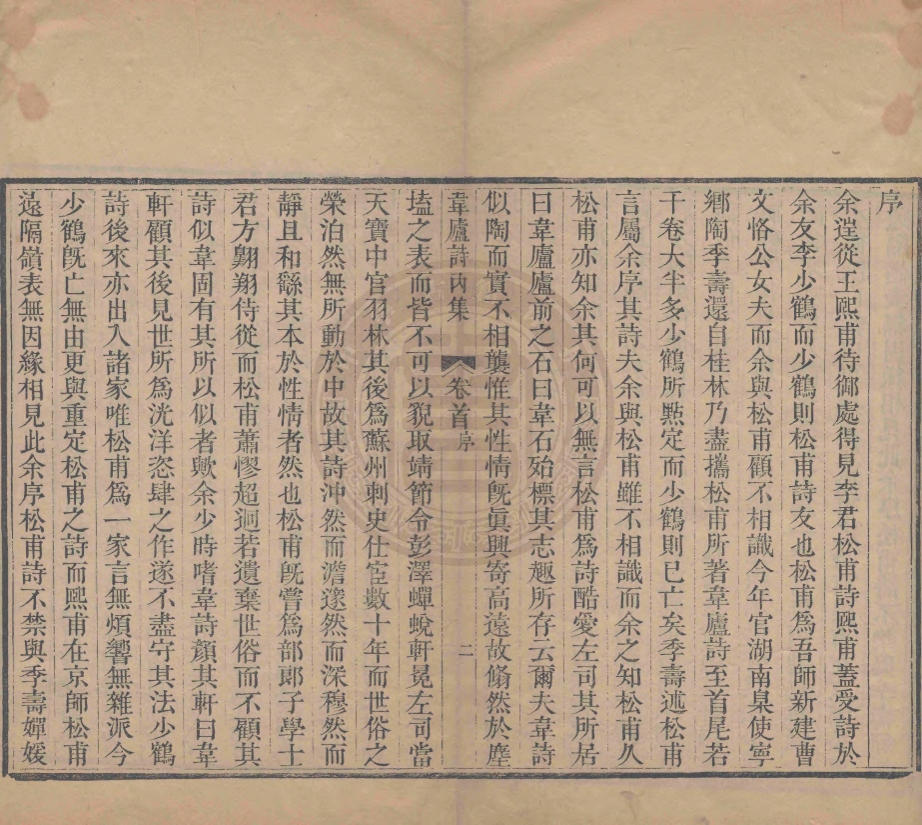 序
余遑從王熙甫待御處得見李君松甫詩熙甫蓋受詩於
余友李少鶴而少鶴則松甫詩友也松甫爲吾師新建曹
文恪公女夫而余與松甫顧不相識今年官湖南臬使寧
鄕陶季壽還自桂林乃盡攜松甫所著韋廬詩至首尾若
干卷大半多少鶴所點定而少鶴則已亡矣季壽述松甫
言屬余序其詩夫余與松甫雖不相識而余之知松甫久
松甫亦知余其何可以無言松甫爲詩酷愛左司其所居
曰韋廬廬前之石曰韋石殆標其志趣所存云爾夫韋詩
似陶而實不相襲惟其性情旣眞興寄高遠故翛然於塵
韋廬詩内集 卷首序 二
壒之表而皆不可以貌取靖節令彭澤蟬蛻軒冕左司當
天寶中官羽林其後爲蘇州刺史仕宦數十年而世俗之
榮泊然無所動於中故其詩沖然而澹邃然而深穆然而
靜且和繇其本於性情者然也松甫旣嘗爲部郞子學士
君方翺翔待從而松甫蕭憀超迥若遺棄世俗而不顧其
詩似韋固有其所以似者歟余少時嗜韋詩顏其軒曰韋
軒顧其後見世所爲洸洋恣肆之作遂不盡守其法少鶴
詩後來亦出入諸家唯松甫爲一家言無煩響無雜派今
少鶴旣亡無由更與重定松甫之詩而熙甫在京師松甫
遠隔嶺表無因緣相見此余序松甫詩不禁與季壽嬋媛